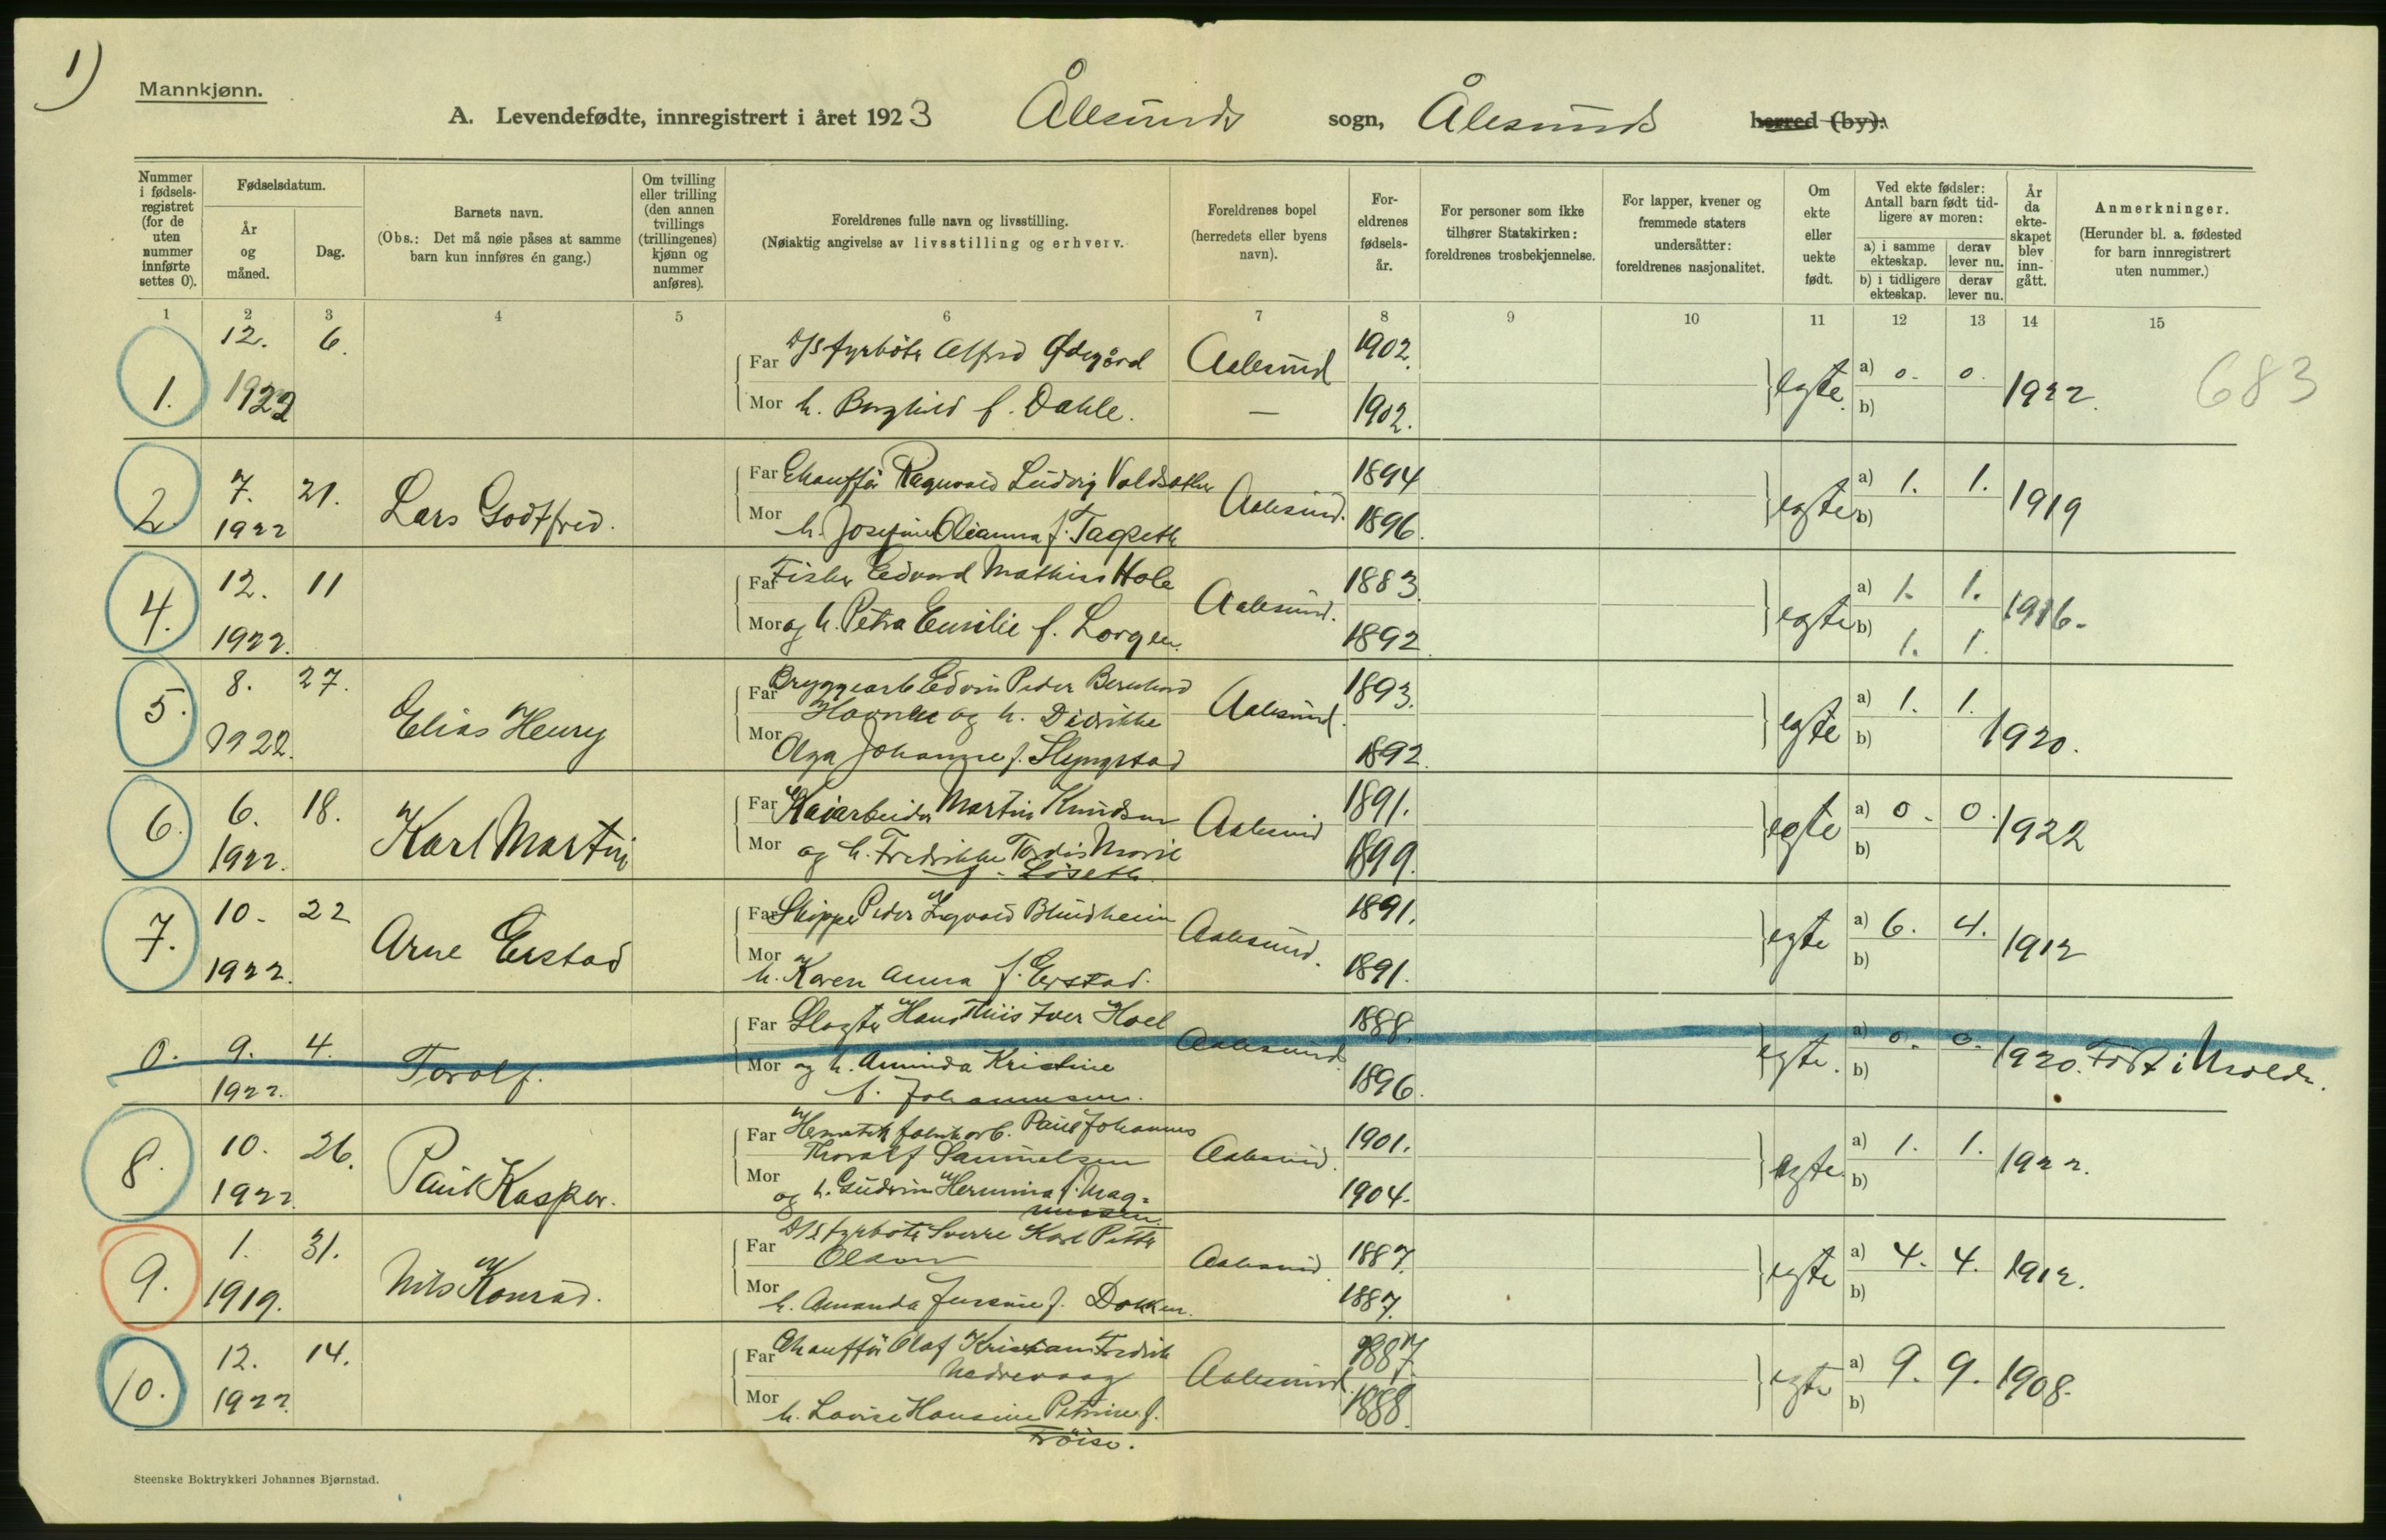 1)
Mannkjønn.
A. Levendefødte, innregistrert i året 1923 Ålesunds sogn, Ålesunds herred (by):
Nummer i fødsels-registret (for de uten nummer innførte settes 0).
Fødselsdatum.
År og måned.
Dag.
Barnets navn.
(Obs.: Det må nøie påses at samme barn kun innføres én gang.)
Om tvilling eller trilling (den annen tvillings (trillingenes) kjønn og nummer anføres).
Foreldrenes fulle navn og livsstilling.
(Nøiaktig angivelse av livsstilling og erhverv.
Foreldrenes bopel (herredets eller byens navn).
For-eldrenes fødsels-år.
For personer som ikke tilhører Statskirken: foreldrenes trosbekjennelse.
For lapper, kvener og fremmede staters undersåtter: foreldrenes nasjonalitet.
Om ekte eller uekte født.
Ved ekte fødsler: Antall barn født tid-ligere av moren:
a) i samme ekteskap. derav lever nu.
b) i tidligere ekteskap. derav lever nu.
År da ekte-skapet blev inn-gått.
Anmerkninger.
(Herunder bl. a. fødested for barn innregistrert uten nummer.)
1 2 3 4 5 6 7 8 9 10 11 12 13 14 15
12. 6.
1. 1922
Far D/S fyrböter Alfred Ødegård Aalesund 1902.
Mor h. Borghild f. Dahle. — 1902.
egte. a) 0. 0. b) 1922. 683
2. 7. 21.
1922
Lars Godtfred.
Far Chaufför Ragnvald Ludvig Valdsæther Aalesund. 1894
Mor h. Josefine Oleanna f. Tagseth 1896.
egte a) 1. 1. b) 1919
4. 12. 11
1922.
Far Fisker Edvard Mathias Hole Aalesund. 1883.
Mor og h. Petra Emilie f. Lorgen. 1892.
egte a) 1. 1. b) 1. 1. 1916.
5. 8. 27.
1922.
Elias Henry
Far Bryggearb. Edvin Peder Bernhard
og h. Didrikke Aalesund. 1893.
Mor Olga Johanne f. Slyngstad 1892.
egte a) 1. 1. b) 1920.
6. 6. 18.
1922.
Karl Martin
Far Kaiarbeider Martin Knudsen Aalesund 1891.
Mor og h. Fredrikke Tordis Marie
f. Löseth. 1899.
egte a) 0. 0. b) 1922
7. 10. 22
1922.
Arne Erstad
Far Skipper Peder Ingvald Blindheim Aalesund. 1891.
Mor h. Karen Anna f. Erstad. 1891.
egte a) 6. 4. b) 1912
0. 9. 4.
1922.
Torolf.
Far Slagter Hans Thiis Iver Hoel Aalesund. 1888.
Mor og h. Aminda Kristine
f. Johannesen. 1896.
egte. a) 0. 0. b) 1920. Född i Molde.
8. 10. 26.
1922
Paul Kasper.
Far Hermetikfabrikarb. Paul Johannes
Thoralf Samuelsen Aalesund. 1901.
Mor og h. Gudrun Hermina f. Mag=
nussen. 1904.
egte. a) 1. 1. b) 1922.
9. 1. 31.
1919.
Nils Konrad.
Far D/S fyrböter Sverre Karl Petter
Olsen Aalesund. 1887.
Mor h. Amanda Jensine f. Dokken. 1887.
egte a) 4. 4. b) 1912.
10. 12. 14.
1922.
Far Chaufför Olaf Kristian Fredrik
Nedrevaag Aalesund. 1887.
Mor h. Lovise Hansine Petrine f.
Fröisø. 1888.
egte a) 9. 9. b) 1908.
Steenske Boktrykkeri Johannes Bjørnstad.